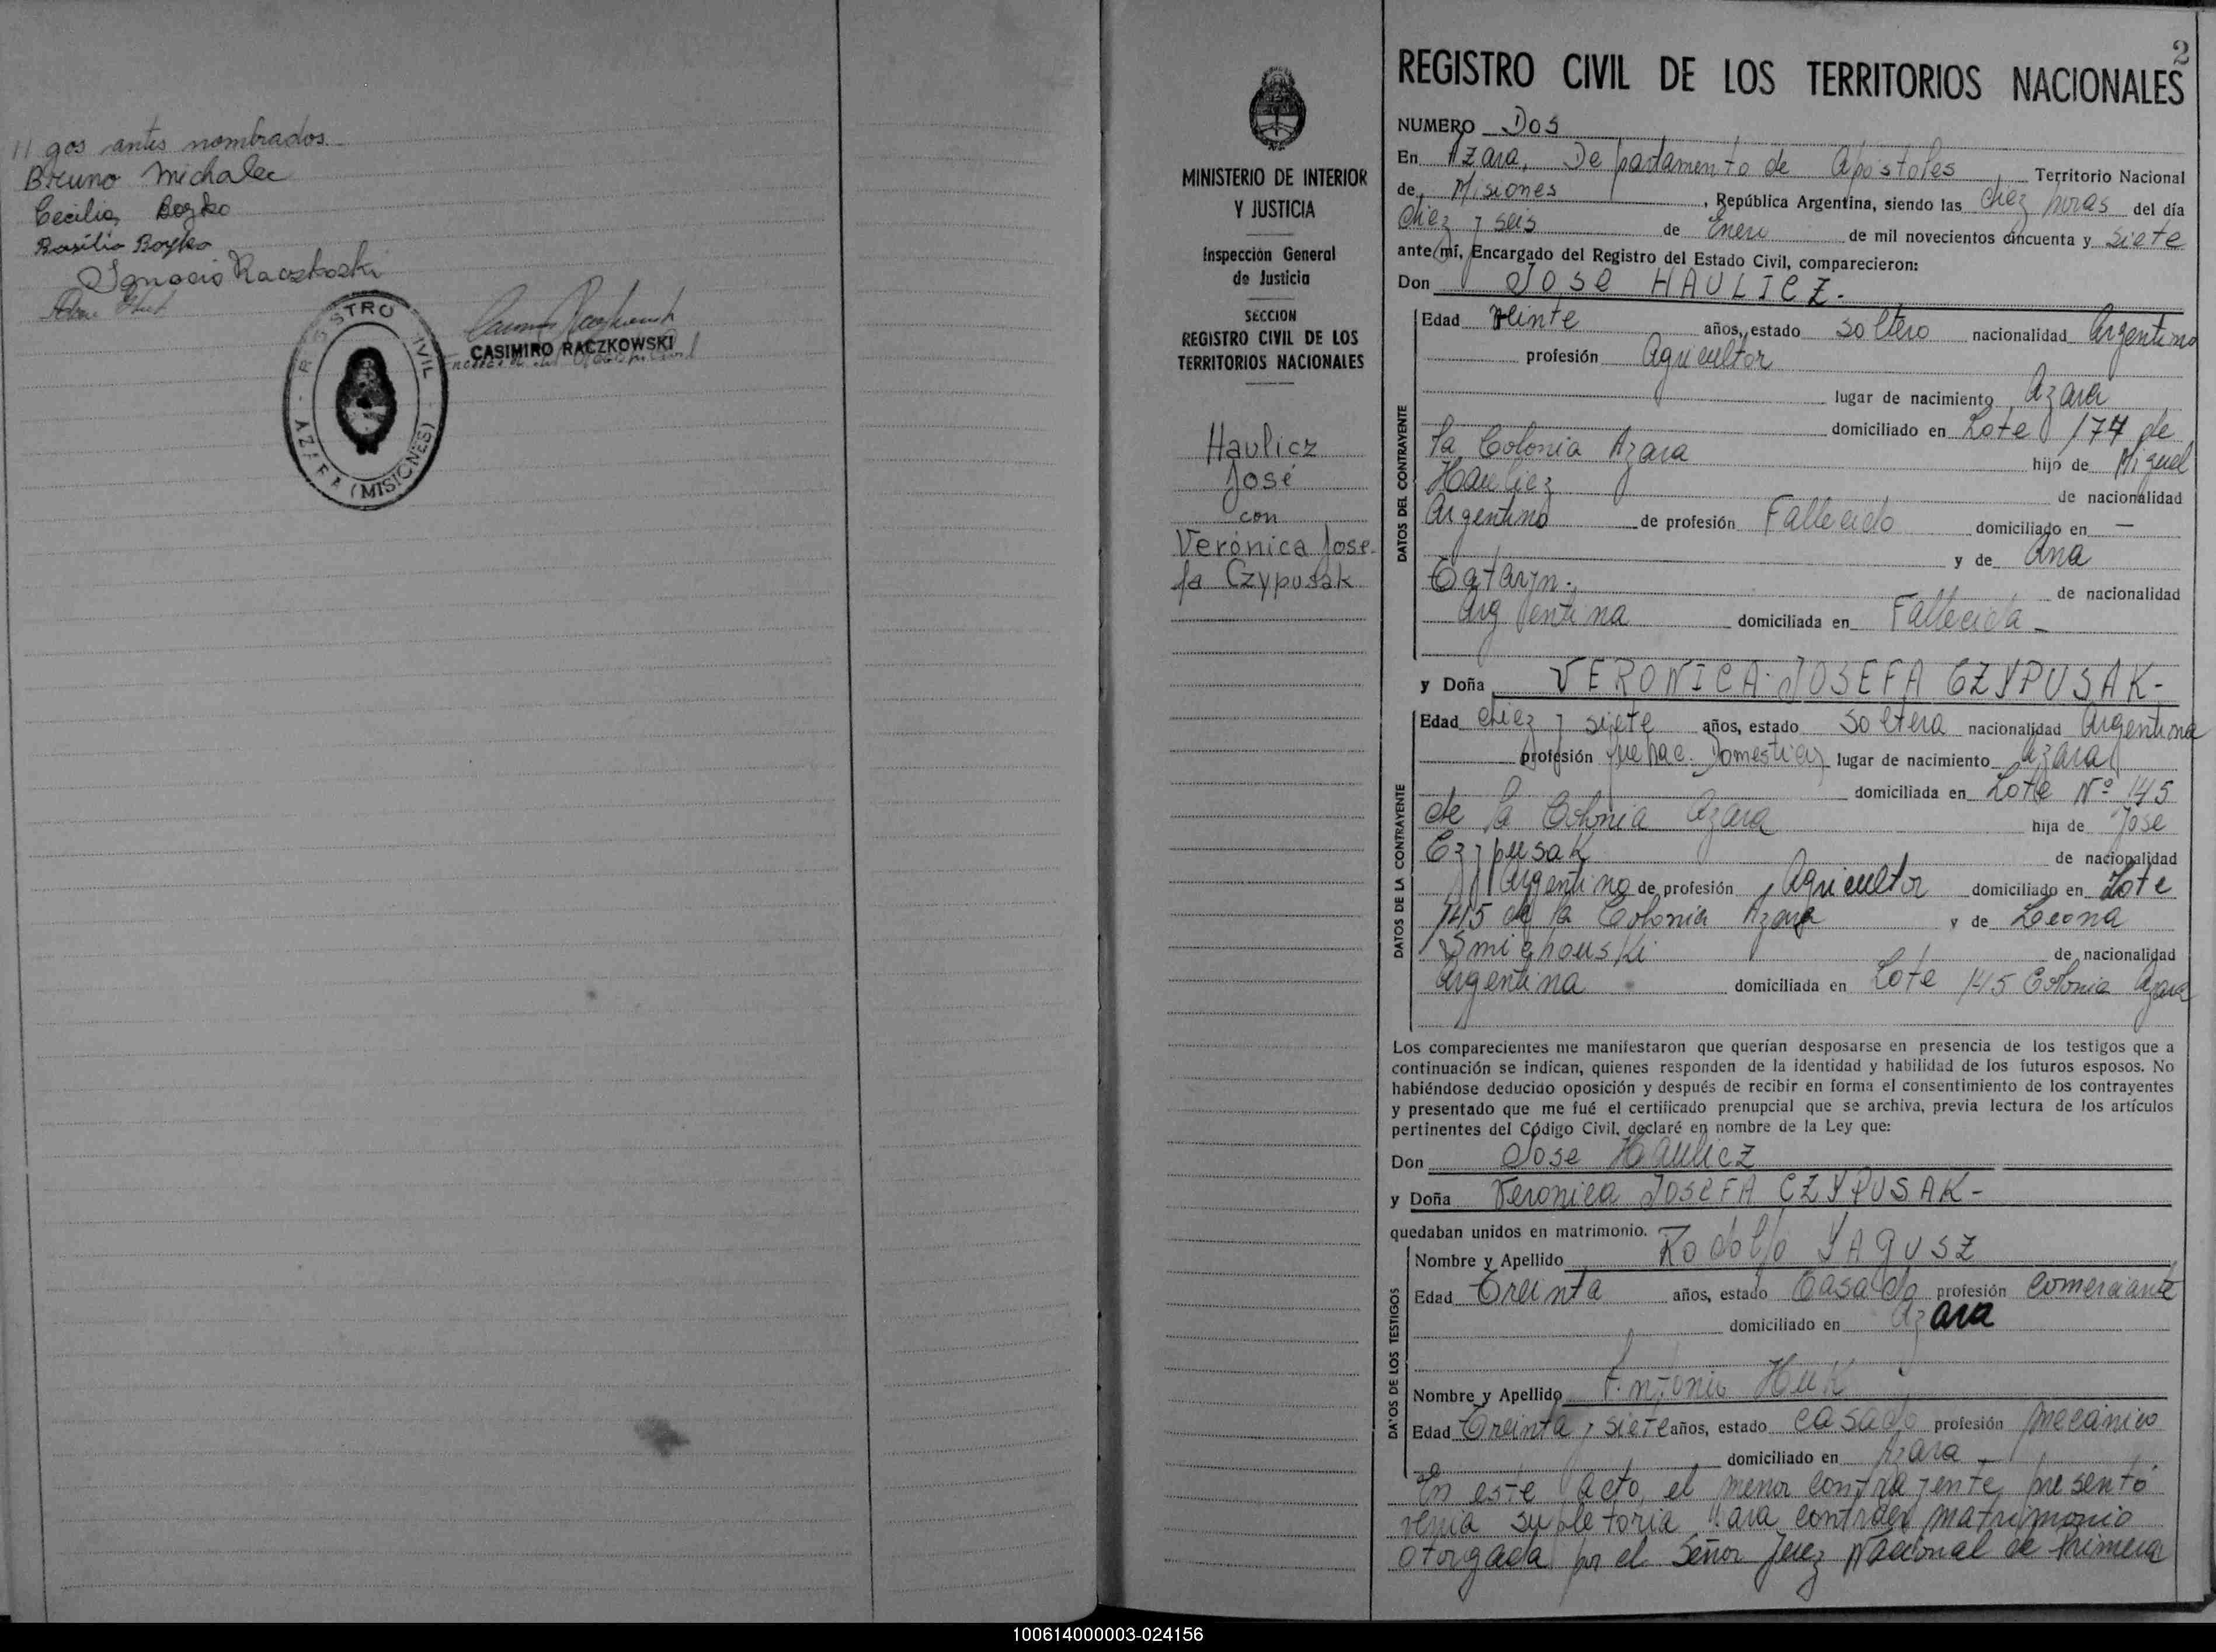 gos antes nombrados.
Bruno Michalec
Cecilia Boyko
Basilio Boyko
Ignacio Raczkoski
CASIMIRO RACZKOWSKI
Encargado del Registro Civil
REGISTRO CIVIL
AZARA (MISIONES)
MINISTERIO DE INTERIOR
Y JUSTICIA
Inspección General
de Justicia
SECCION
REGISTRO CIVIL DE LOS
TERRITORIOS NACIONALES
Haulicz
José
con
Verónica Jose-
fa Czypusak
2
REGISTRO CIVIL DE LOS TERRITORIOS NACIONALES
NUMERO Dos
En Azara, Departamento de Apóstoles Territorio Nacional
de Misiones, República Argentina, siendo las diez horas del día
diez y seis de Enero de mil novecientos cincuenta y siete
ante mí, Encargado del Registro del Estado Civil, comparecieron:
Don JOSE HAULICZ.
DATOS DEL CONTRAYENTE
Edad veinte años, estado soltero nacionalidad Argentino
profesión Agricultor
lugar de nacimiento Azara
domiciliado en Lote 174 de
la Colonia Azara hijo de Miguel
Haulicz de nacionalidad
Argentino de profesión Fallecido domiciliado en —
y de Ana
Cataryn. de nacionalidad
Argentina domiciliada en Fallecida -
y Doña VERONICA JOSEFA CZYPUSAK-
DATOS DE LA CONTRAYENTE
Edad diez y siete años, estado soltera nacionalidad Argentina
profesión quehac. Domesticos lugar de nacimiento Azara
domiciliada en Lote Nº 145
de la Colonia Azara hija de José
Czypusak de nacionalidad
Argentino de profesión Agricultor domiciliado en Lote
145 de la Colonia Azara y de Leona
Smichouski de nacionalidad
Argentina domiciliada en Lote 145 Colonia Azara
Los comparecientes me manifestaron que querían desposarse en presencia de los testigos que a
continuación se indican, quienes responden de la identidad y habilidad de los futuros esposos. No
habiéndose deducido oposición y después de recibir en forma el consentimiento de los contrayentes
y presentado que me fué el certificado prenupcial que se archiva, previa lectura de los artículos
pertinentes del Código Civil, declaré en nombre de la Ley que:
Don Jose Haulicz
y Doña Veronica JOSEFA CZYPUSAK-
quedaban unidos en matrimonio.
DATOS DE LOS TESTIGOS
Nombre y Apellido Rodolfo YAGUSZ
Edad Treinta años, estado Casado profesión comerciante
domiciliado en Azara
Nombre y Apellido Antonio Huk
Edad Treinta y siete años, estado casado profesión mecánico
domiciliado en Azara
En este acto, el menor contrayente presentó
venia supletoria para contraer matrimonio
otorgada por el Señor Juez Nacional de Primera
100614000003-024156